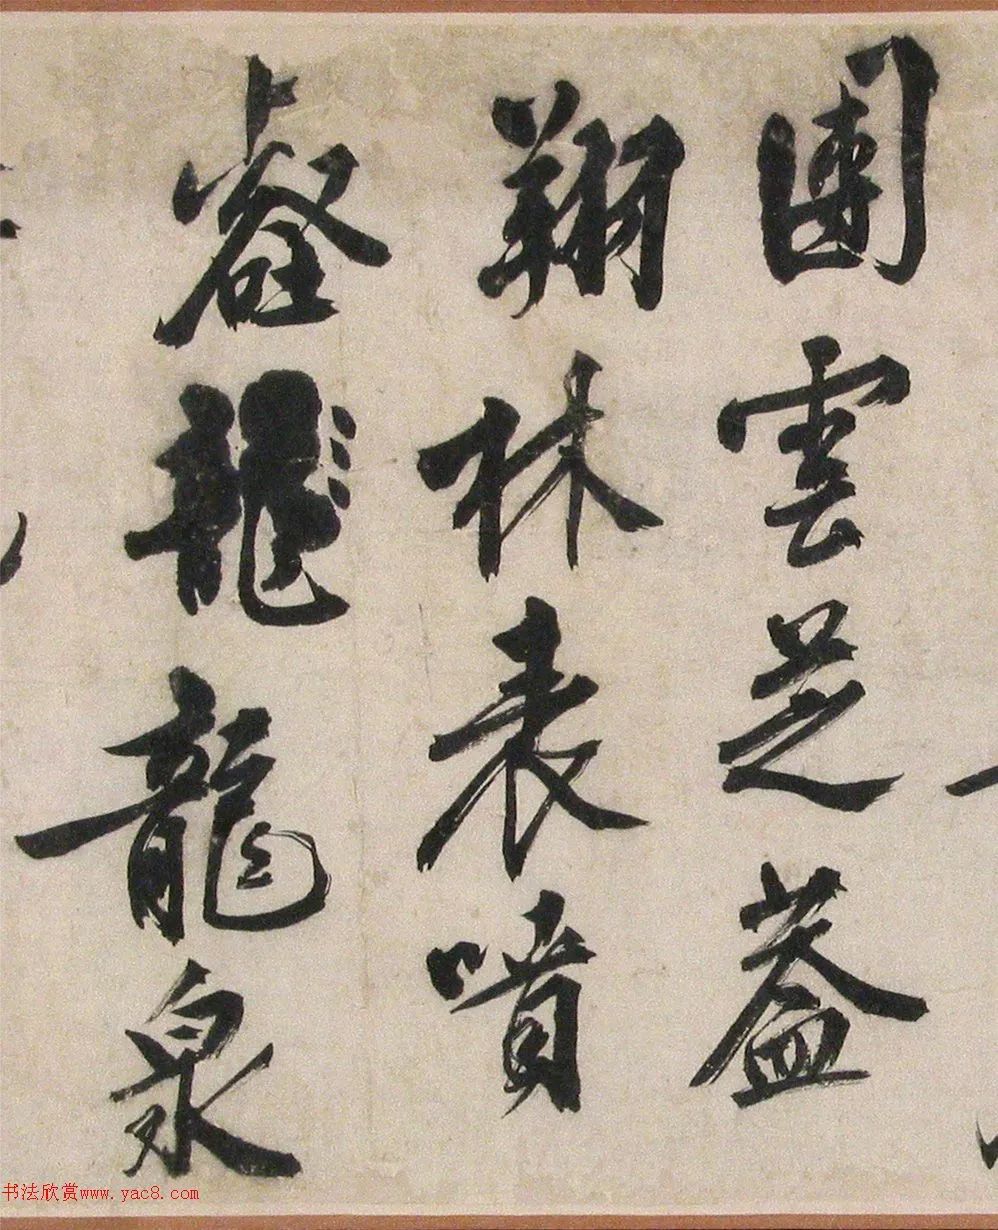 團雲芝蓋
翔林表噴
壑龍龍泉
书法欣赏www.yac8.com